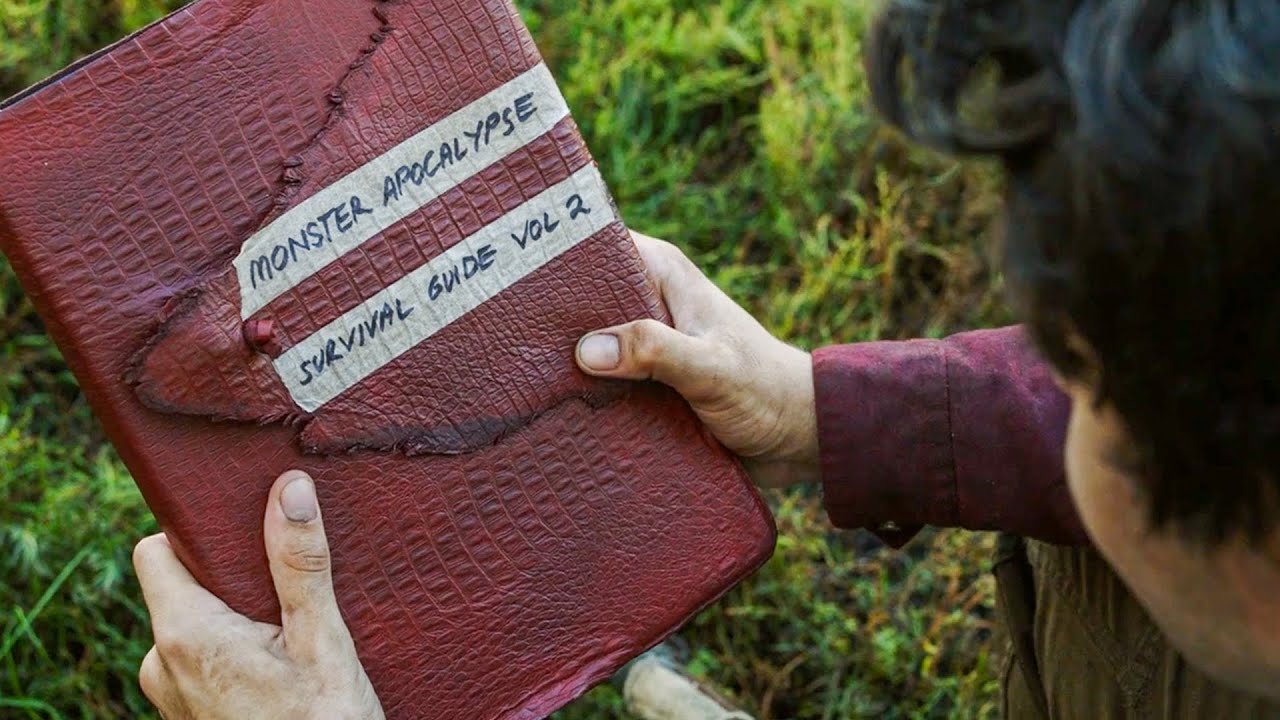 MONSTER APOCALYPSE
SURVIVAL GUIDE VOL 2